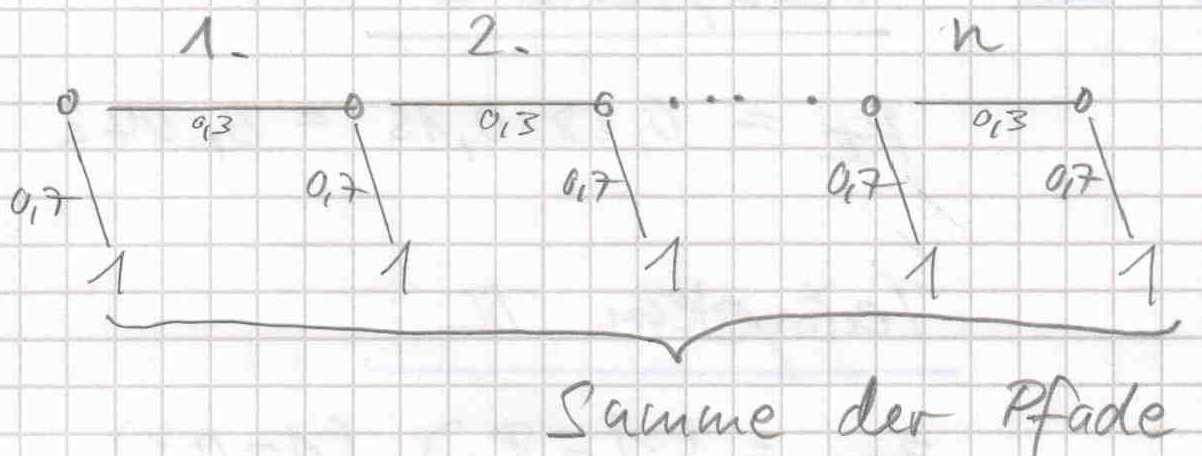 1. 2. n
0 0 0 .... 0 0
0,3 0,3 0,3
0,7 0,7 0,7 0,7 0,7
1 1 1 1 1
Summe der Pfade